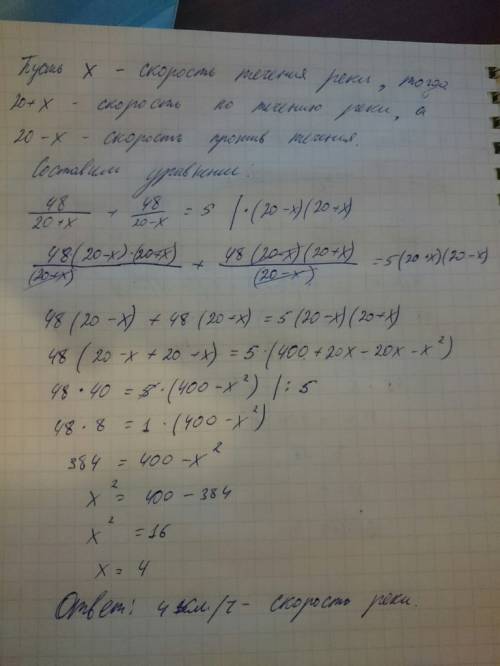 Пусть x - скорость течения реки, тогда
20+x - скорость по течению реки, а
20-x - скорость против течения.
Составим уравнение:
48/(20+x) + 48/(20-x) = 5 | ·(20-x)(20+x)
48(20-x)·(20+x)/(20+x) + 48(20-x)(20+x)/(20-x) = 5(20+x)(20-x)
48(20-x) + 48·(20+x) = 5(20-x)(20+x)
48(20-x+20+x) = 5·(400+20x-20x-x²)
48·40 = 5·(400-x²) |:5
48·8 = 1·(400-x²)
384 = 400-x²
x² = 400-384
x² = 16
x = 4
Ответ: 4 км/ч - скорость реки.